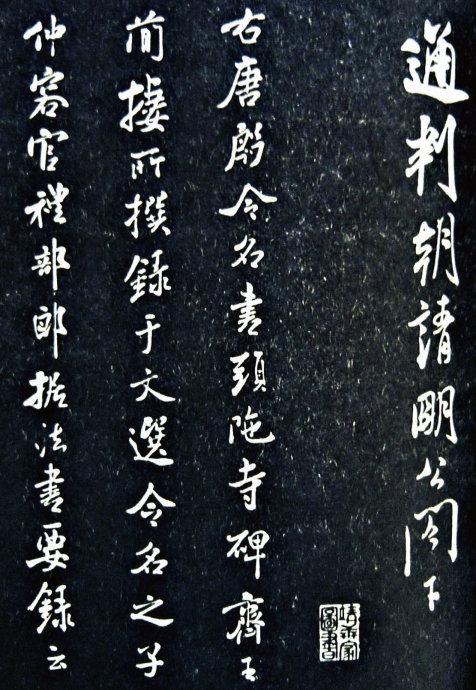 通判朝請明公閤下
右唐殷令名書頭陁寺碑齊王
簡棲所撰錄于文選令名之子
仲容官禮部郎据法書要錄云